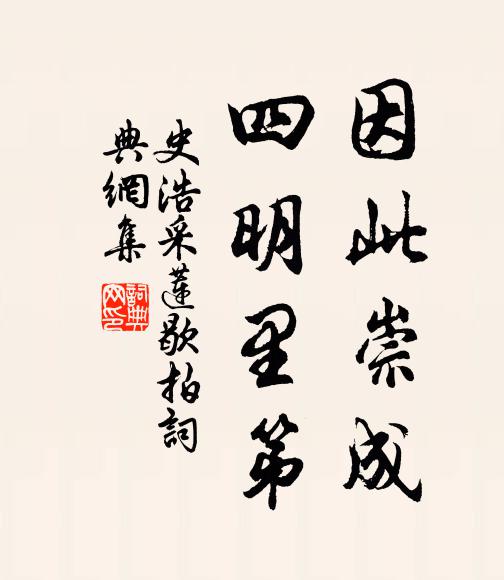 因此崇成
四明里第
史浩采蓮歇拍詞
典網集
詞典
网印